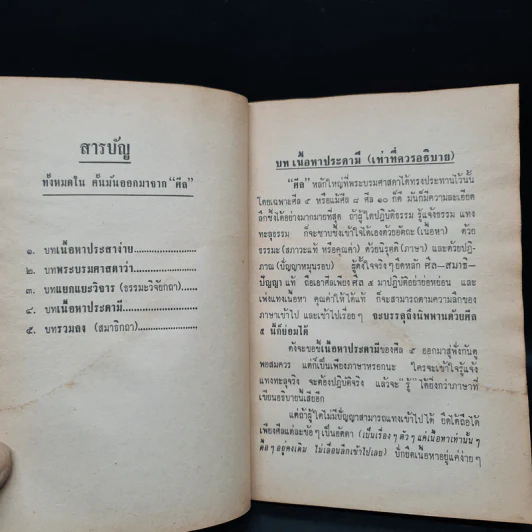 สารบัญ
ทั้งหมดใน คั้นมันออกมาจาก “ศีล”
๑. บทเนื้อหาประสาง่าย......................
๒. บทพระบรมศาสดาว่า......................
๓. บทแยกแยะวิจาร (ธรรมะวิจัยกถา)............
๔. บทเนื้อหาประดามี......................
๕. บทรวมลง (สมาธิกถา)......................
บท เนื้อหาประดามี (เท่าที่ควรอธิบาย)
“ศีล” หลักใหญ่ที่พระบรมศาสดาได้ทรงประทานไว้นั้น
โดยเฉพาะศีล ๕ หรือแม้ศีล ๘ ศีล ๑๐ ก็ดี มันก็มีความละเอียด
ลึกซึ้งได้อย่างมากมายที่สุด ถ้าผู้ใดปฏิบัติธรรม รู้แจ้งธรรม แทง
ทะลุธรรม ก็จะซาบซึ้งเข้าใจได้เองด้วยอัตถะ (เนื้อหา) ด้วย
ธรรมะ (สภาวะแท้ หรือคุณค่า) ด้วยนิรุติ (ภาษา) และด้วยปฏิ-
ภาณ (ปัญญาหมุนรอบ) ผู้ตั้งใจจริงๆ ยึดหลัก ศีล–สมาธิ–
ปัญญา แท้ ถือเอาศีลเพียงศีล ๕ มาปฏิบัติอย่าย่อหย่อน และ
เพ่งแทงเนื้อหา คุณค่าให้ได้แท้ ก็จะสามารถตามความลึกของ
ภาษาเข้าไป และเข้าไปเรื่อยๆ จะบรรลุถึงนิพพานด้วยศีล
๕ นี้ก็ย่อมได้
ดังจะขอชี้เนื้อหาประดามีของศีล ๕ ออกมาสู่ฟังกันดู
พอสมควร แต่ก็เป็นเพียงภาษาหรอกนะ ใครจะเข้าใจรู้แจ้ง
แทงทะลุจริง จะต้องปฏิบัติจริง แล้วจะ “รู้” ได้ยิ่งกว่าภาษาที่
เขียนอธิบายนี้เสียอีก
แต่ถ้าผู้ใดไม่มีปัญญาสามารถแทงเข้าไปได้ ยึดได้ถือได้
เพียงศีลแต่ละข้อๆ เป็นอัตตา (เป็นเรื่องๆ ตัวๆ แค่เนื้อหาเท่านั้นๆ
คือๆ อยู่คงเดิม ไม่เลื่อนลึกเข้าไปเลย) ปักยึดเนื้อหาอยู่แค่ง่ายๆ